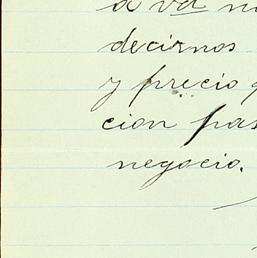 a vd
decirnos
y precio
cion pas
negocio.